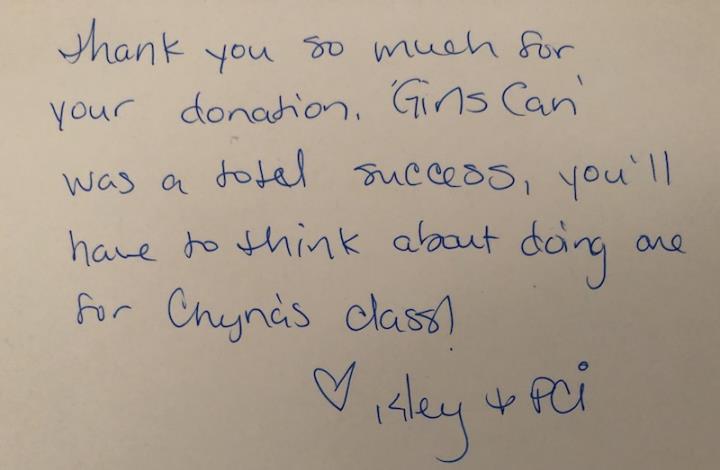 thank you so much for
your donation. 'Girls Can'
was a total success, you'll
have to think about doing one
for Chyna's class!
♡ & PCi